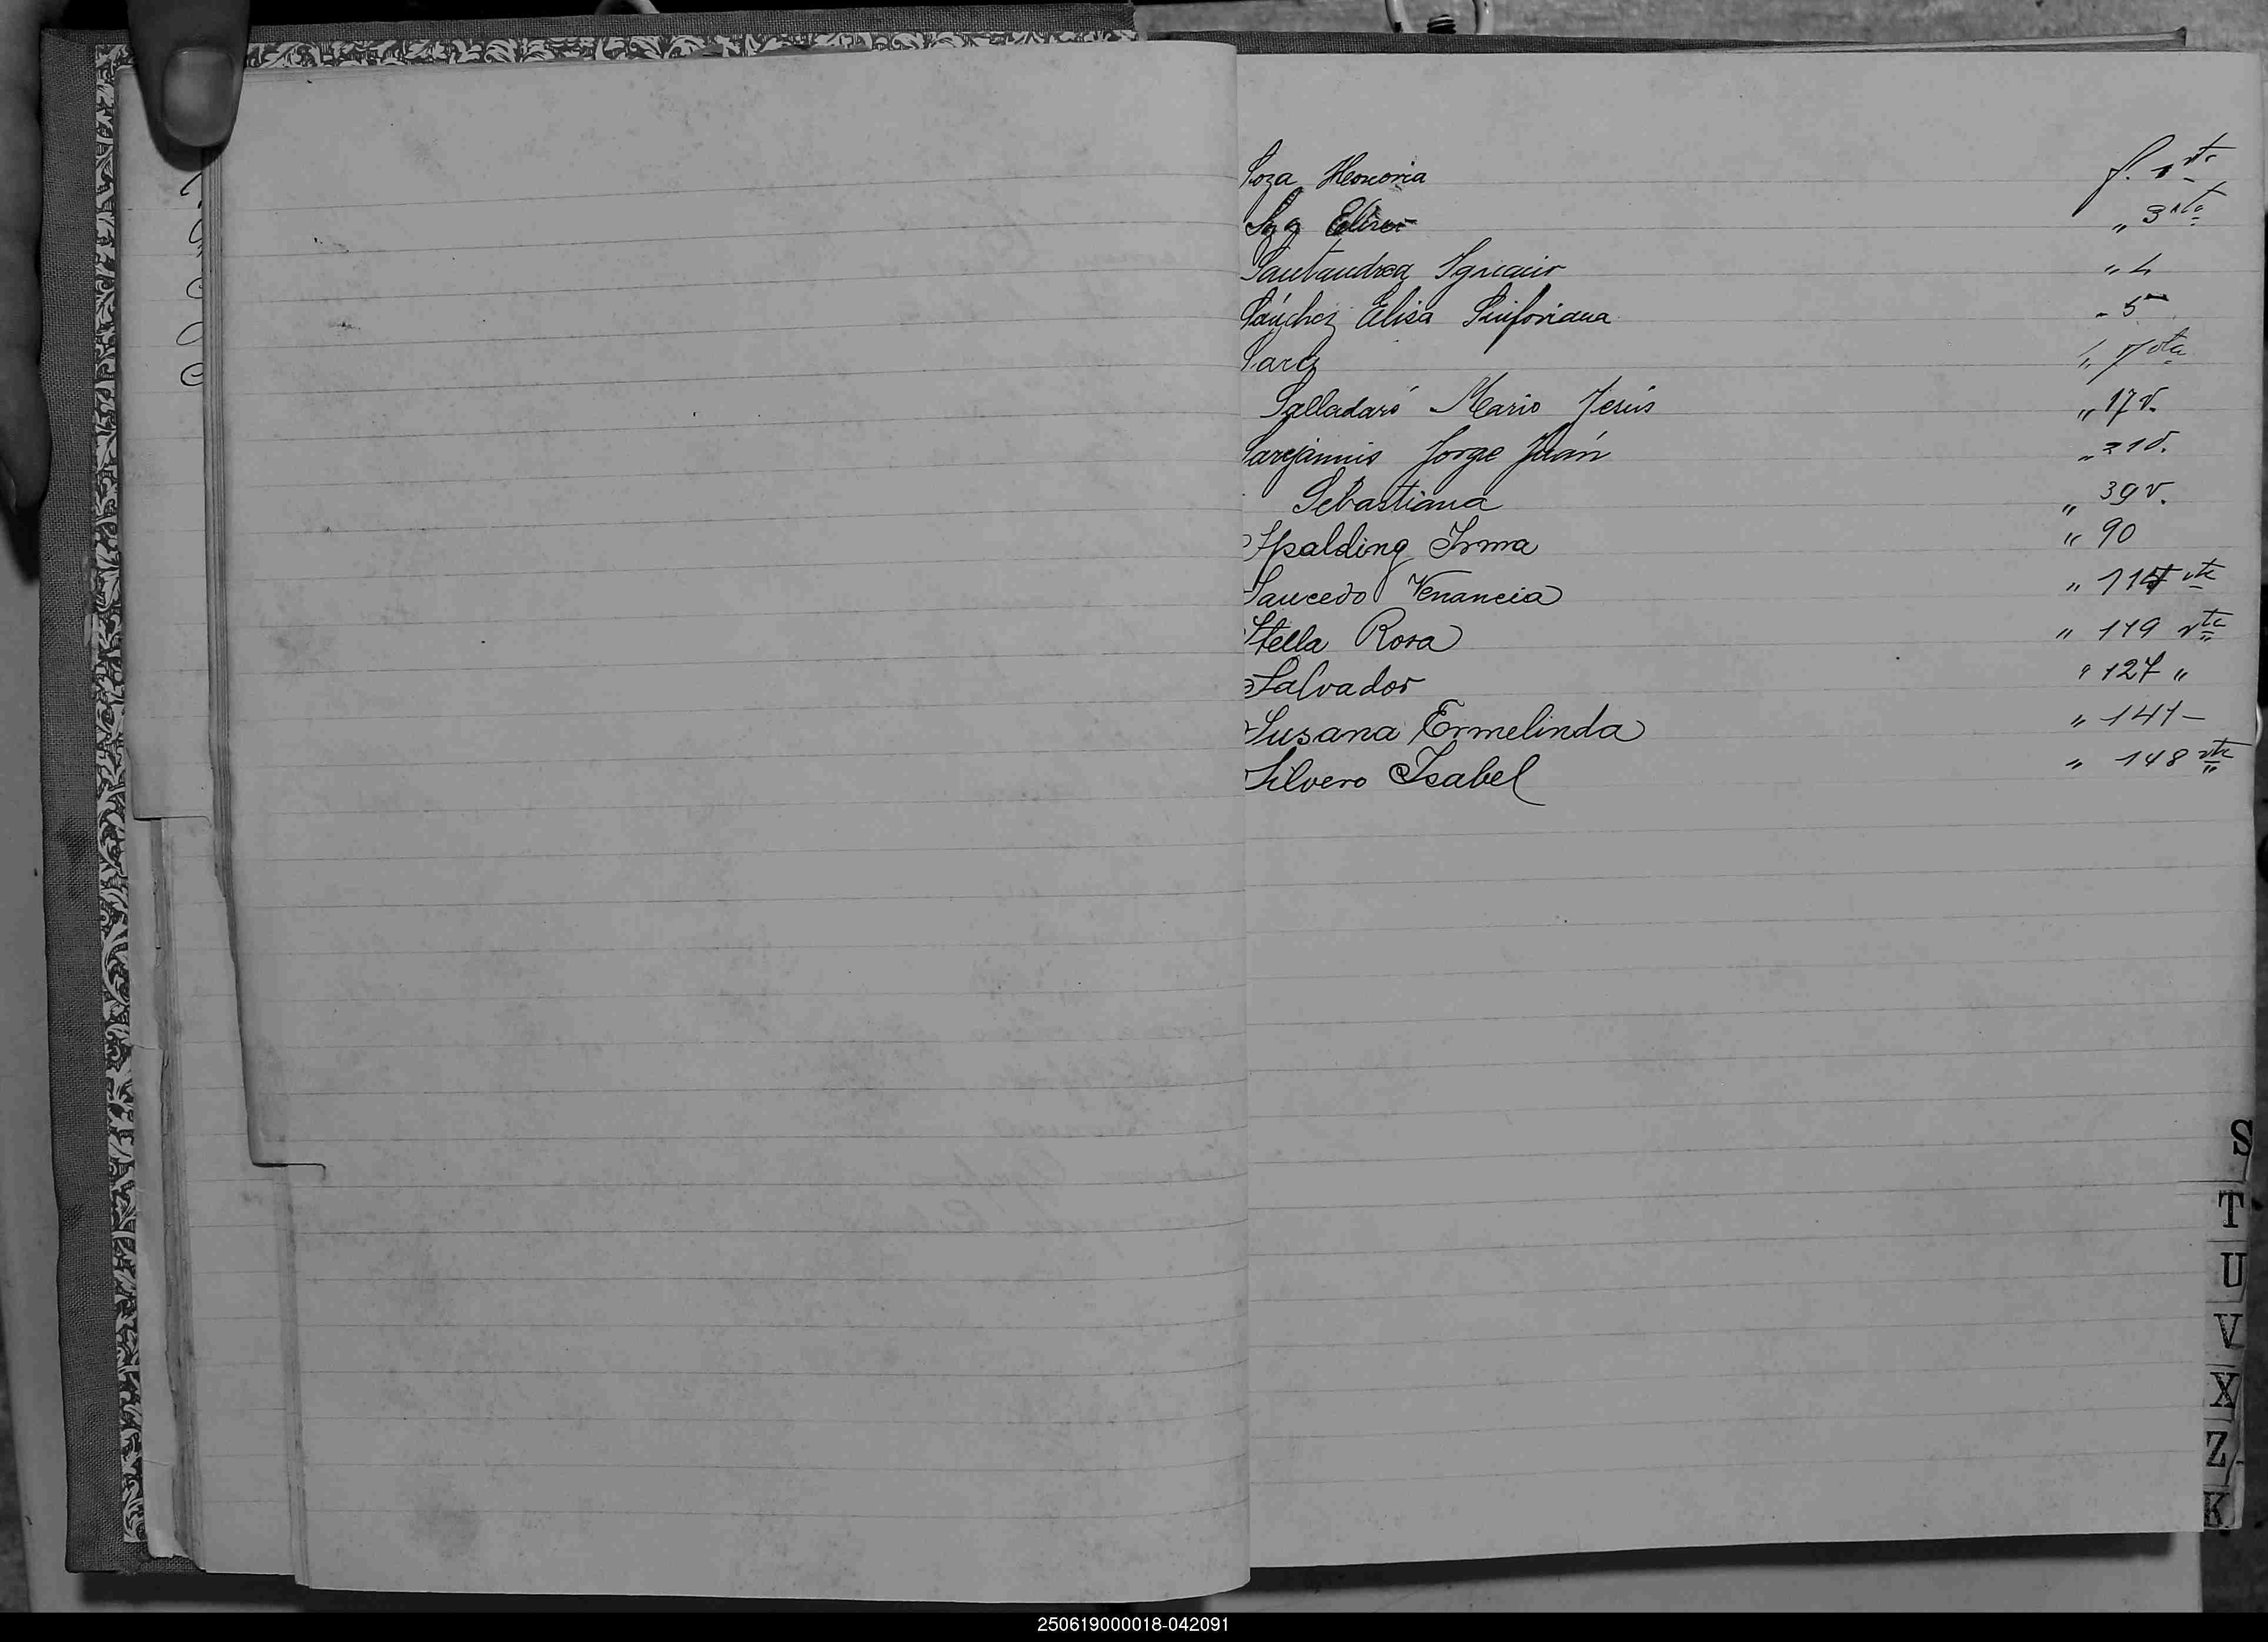 Soza Honoria f. 1 vta
Soza Eliseo " 3 vta
Santandrea Ignacio " 4
Sánchez Elisa Sinforiana " 5
Sara " 7 vta
Salladaró Mario Jesús " 17 v.
Sarejannis Jorge Juán " 31 v.
Sebastiana " 39 v.
Spalding Irma " 90
Saucedo Venancia " 114 vta
Stella Rosa " 119 vta
Salvador " 127 "
Susana Ermelinda " 141 -
Silvero Isabel " 148 vta
S
T
U
V
X
Z
K
250619000018-042091